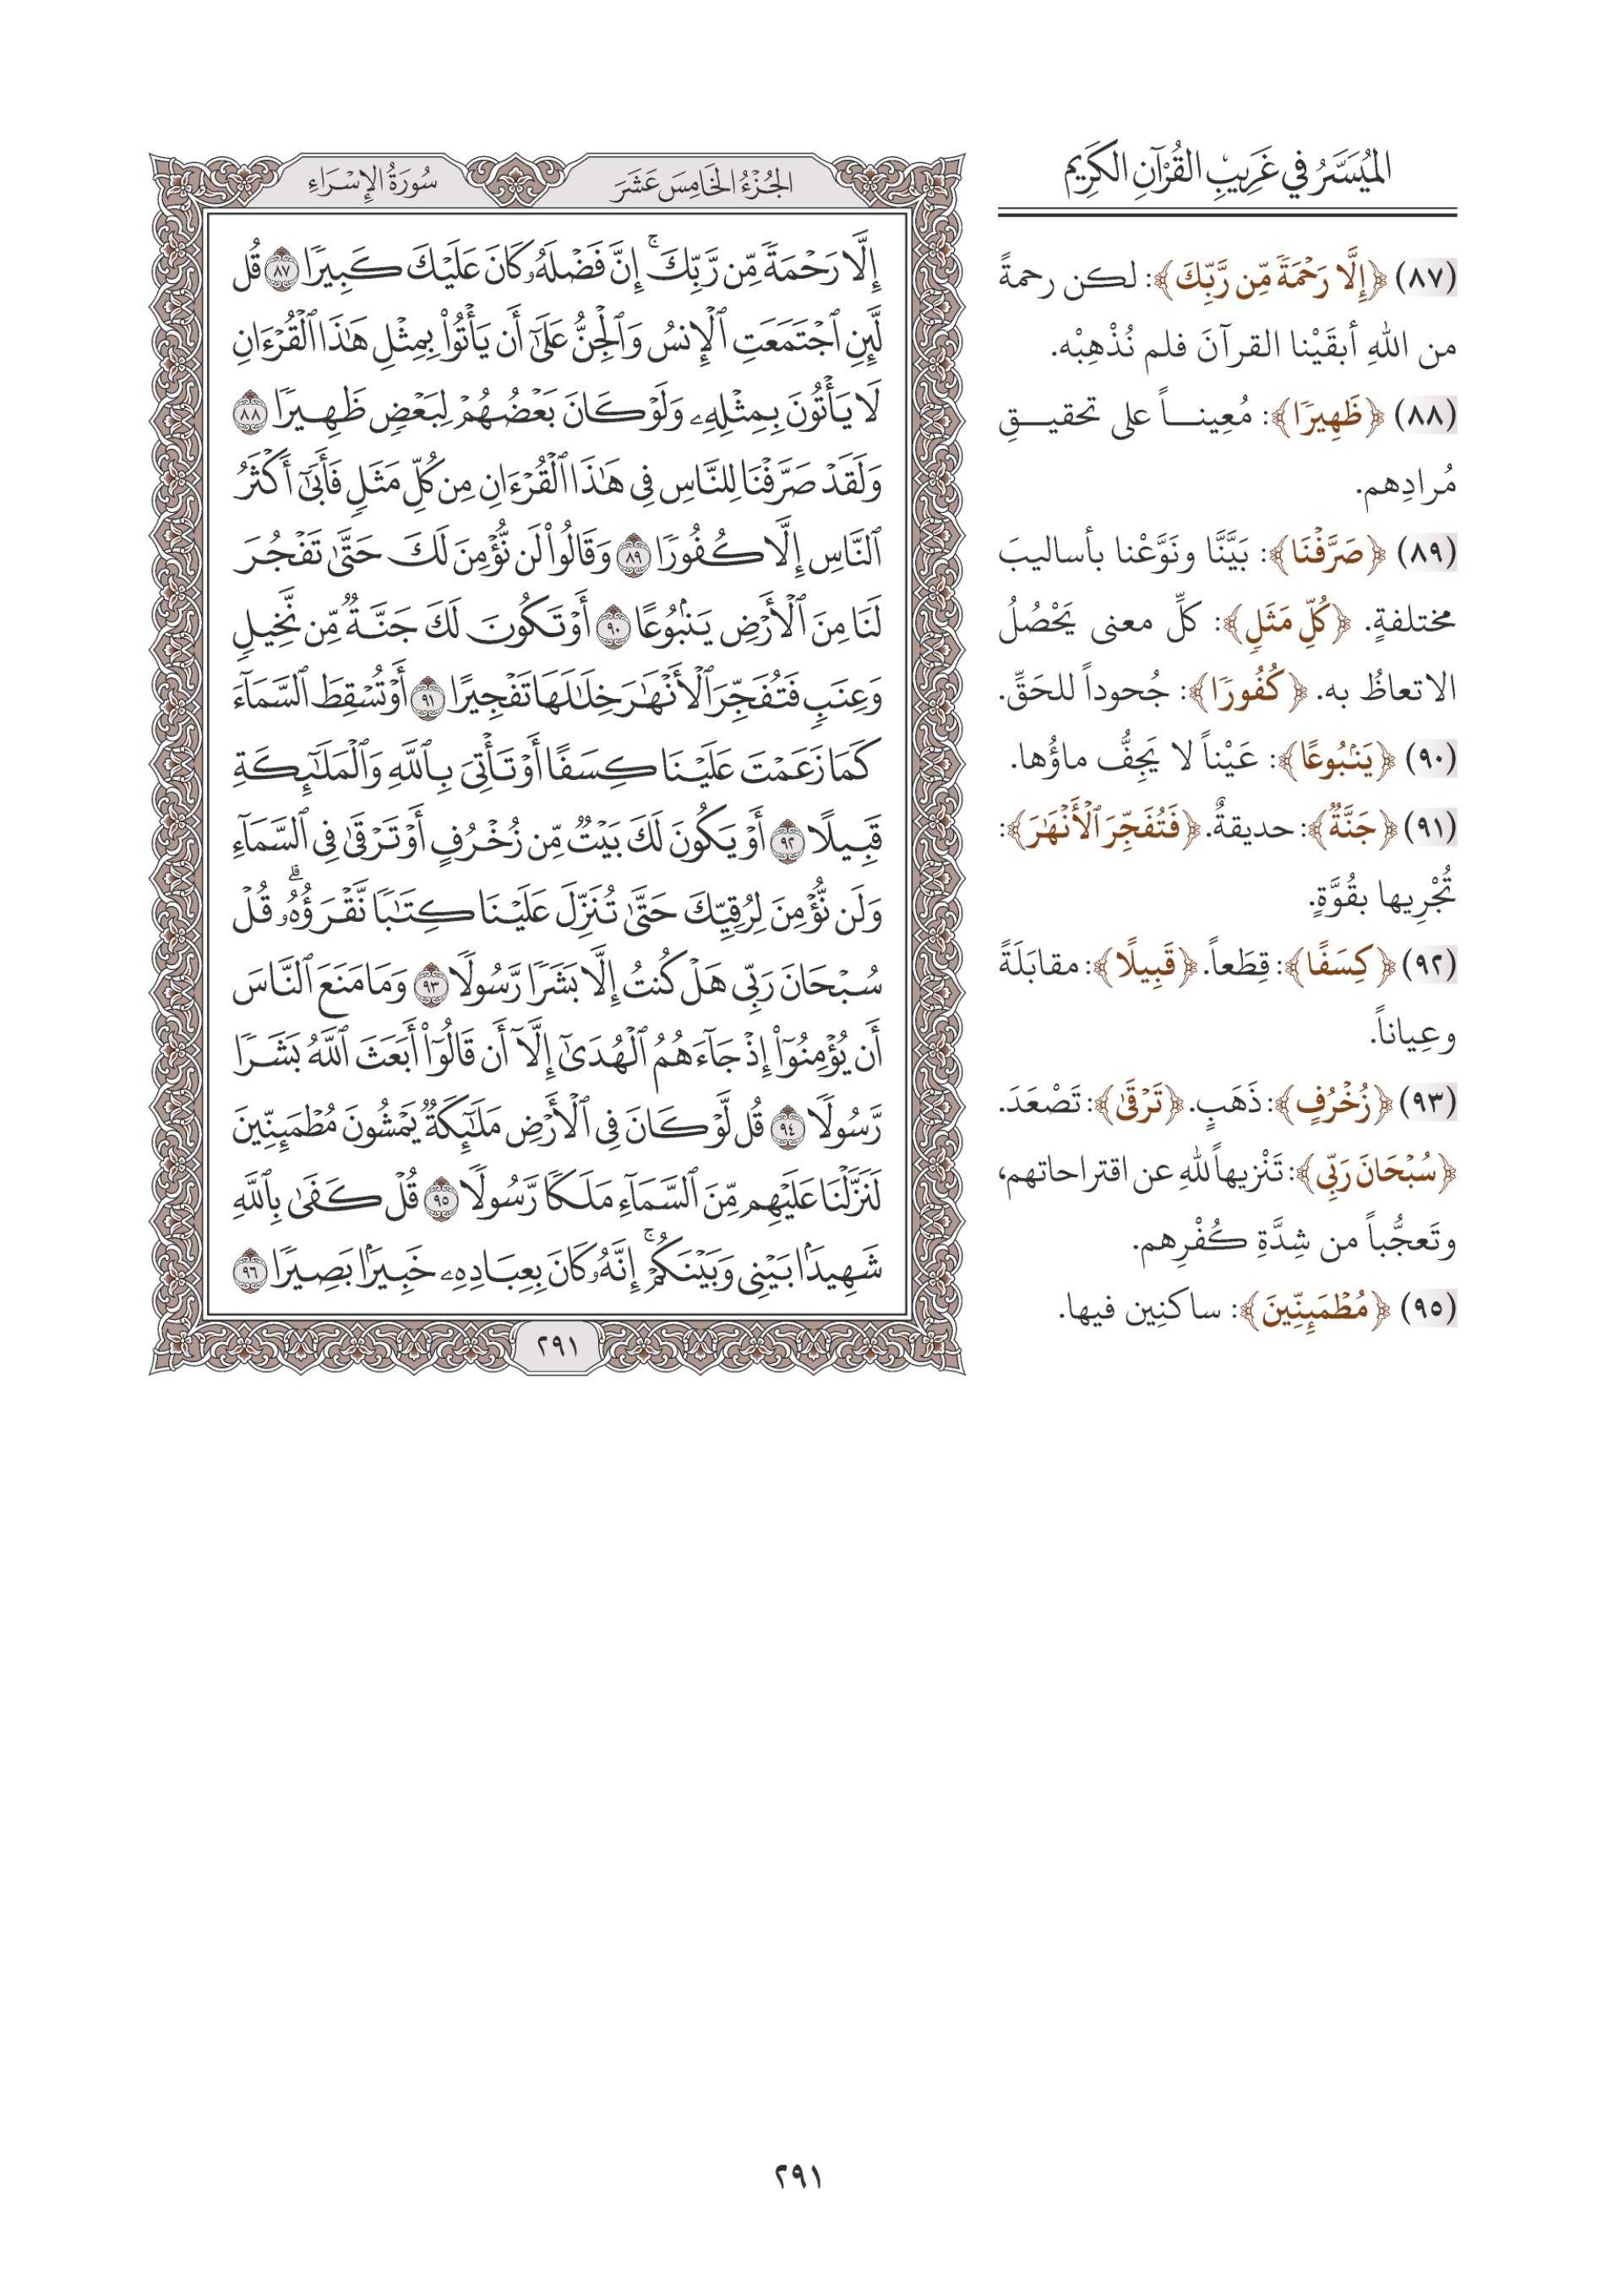 الميُسَّرُ في غَرِيبِ القُرْآنِ الكَرِيم
(٨٧) ﴿إِلَّا رَحْمَةً مِّن رَّبِّكَ﴾: لكن رحمةً
من اللهِ أبقَيْنا القرآنَ فلم نُذْهِبْه.
(٨٨) ﴿ظَهِيرًا﴾: مُعِينـــاً على تحقيـــقِ
مُرادِهم.
(٨٩) ﴿صَرَّفْنَا﴾: بَيَّنَّا ونَوَّعْنا بأساليبَ
مختلفةٍ. ﴿كُلِّ مَثَلٍ﴾: كلِّ معنى يَحْصُلُ
الاتعاظُ به. ﴿كُفُورًا﴾: جُحوداً للحَقِّ.
(٩٠) ﴿يَنۢبُوعًا﴾: عَيْناً لا يَجِفُّ ماؤُها.
(٩١) ﴿جَنَّةٌ﴾: حديقةٌ. ﴿فَتُفَجِّرَ ٱلْأَنْهَٰرَ﴾:
تُجْرِيها بقُوَّةٍ.
(٩٢) ﴿كِسَفًا﴾: قِطَعاً. ﴿قَبِيلًا﴾: مقابَلَةً
وعِياناً.
(٩٣) ﴿زُخْرُفٍ﴾: ذَهَبٍ. ﴿تَرْقَىٰ﴾: تَصْعَدَ.
﴿سُبْحَانَ رَبِّي﴾: تَنْزيهاً للهِ عن اقتراحاتهم،
وتَعجُّباً من شِدَّةِ كُفْرِهم.
(٩٥) ﴿مُطْمَئِنِّينَ﴾: ساكنِين فيها.
الجُزْءُ الخَامِسَ عَشَرَ
سُورَةُ الإِسْرَاءِ
إِلَّا رَحْمَةً مِّن رَّبِّكَۚ إِنَّ فَضْلَهُۥ كَانَ عَلَيْكَ كَبِيرًا ٨٧ قُل
لَّئِنِ ٱجْتَمَعَتِ ٱلْإِنسُ وَٱلْجِنُّ عَلَىٰٓ أَن يَأْتُوا۟ بِمِثْلِ هَٰذَا ٱلْقُرْءَانِ
لَا يَأْتُونَ بِمِثْلِهِۦ وَلَوْ كَانَ بَعْضُهُمْ لِبَعْضٍ ظَهِيرًا ٨٨
وَلَقَدْ صَرَّفْنَا لِلنَّاسِ فِى هَٰذَا ٱلْقُرْءَانِ مِن كُلِّ مَثَلٍ فَأَبَىٰٓ أَكْثَرُ
ٱلنَّاسِ إِلَّا كُفُورًا ٨٩ وَقَالُوا۟ لَن نُّؤْمِنَ لَكَ حَتَّىٰ تَفْجُرَ
لَنَا مِنَ ٱلْأَرْضِ يَنۢبُوعًا ٩٠ أَوْ تَكُونَ لَكَ جَنَّةٌ مِّن نَّخِيلٍ
وَعِنَبٍ فَتُفَجِّرَ ٱلْأَنْهَٰرَ خِلَٰلَهَا تَفْجِيرًا ٩١ أَوْ تُسْقِطَ ٱلسَّمَآءَ
كَمَا زَعَمْتَ عَلَيْنَا كِسَفًا أَوْ تَأْتِىَ بِٱللَّهِ وَٱلْمَلَٰٓئِكَةِ
قَبِيلًا ٩٢ أَوْ يَكُونَ لَكَ بَيْتٌ مِّن زُخْرُفٍ أَوْ تَرْقَىٰ فِى ٱلسَّمَآءِ
وَلَن نُّؤْمِنَ لِرُقِيِّكَ حَتَّىٰ تُنَزِّلَ عَلَيْنَا كِتَٰبًا نَّقْرَؤُهُۥۗ قُلْ
سُبْحَانَ رَبِّى هَلْ كُنتُ إِلَّا بَشَرًا رَّسُولًا ٩٣ وَمَا مَنَعَ ٱلنَّاسَ
أَن يُؤْمِنُوٓا۟ إِذْ جَآءَهُمُ ٱلْهُدَىٰٓ إِلَّآ أَن قَالُوٓا۟ أَبَعَثَ ٱللَّهُ بَشَرًا
رَّسُولًا ٩٤ قُل لَّوْ كَانَ فِى ٱلْأَرْضِ مَلَٰٓئِكَةٌ يَمْشُونَ مُطْمَئِنِّينَ
لَنَزَّلْنَا عَلَيْهِم مِّنَ ٱلسَّمَآءِ مَلَكًا رَّسُولًا ٩٥ قُلْ كَفَىٰ بِٱللَّهِ
شَهِيدًۢا بَيْنِى وَبَيْنَكُمْۚ إِنَّهُۥ كَانَ بِعِبَادِهِۦ خَبِيرًۢا بَصِيرًا ٩٦
٢٩١
٢٩١